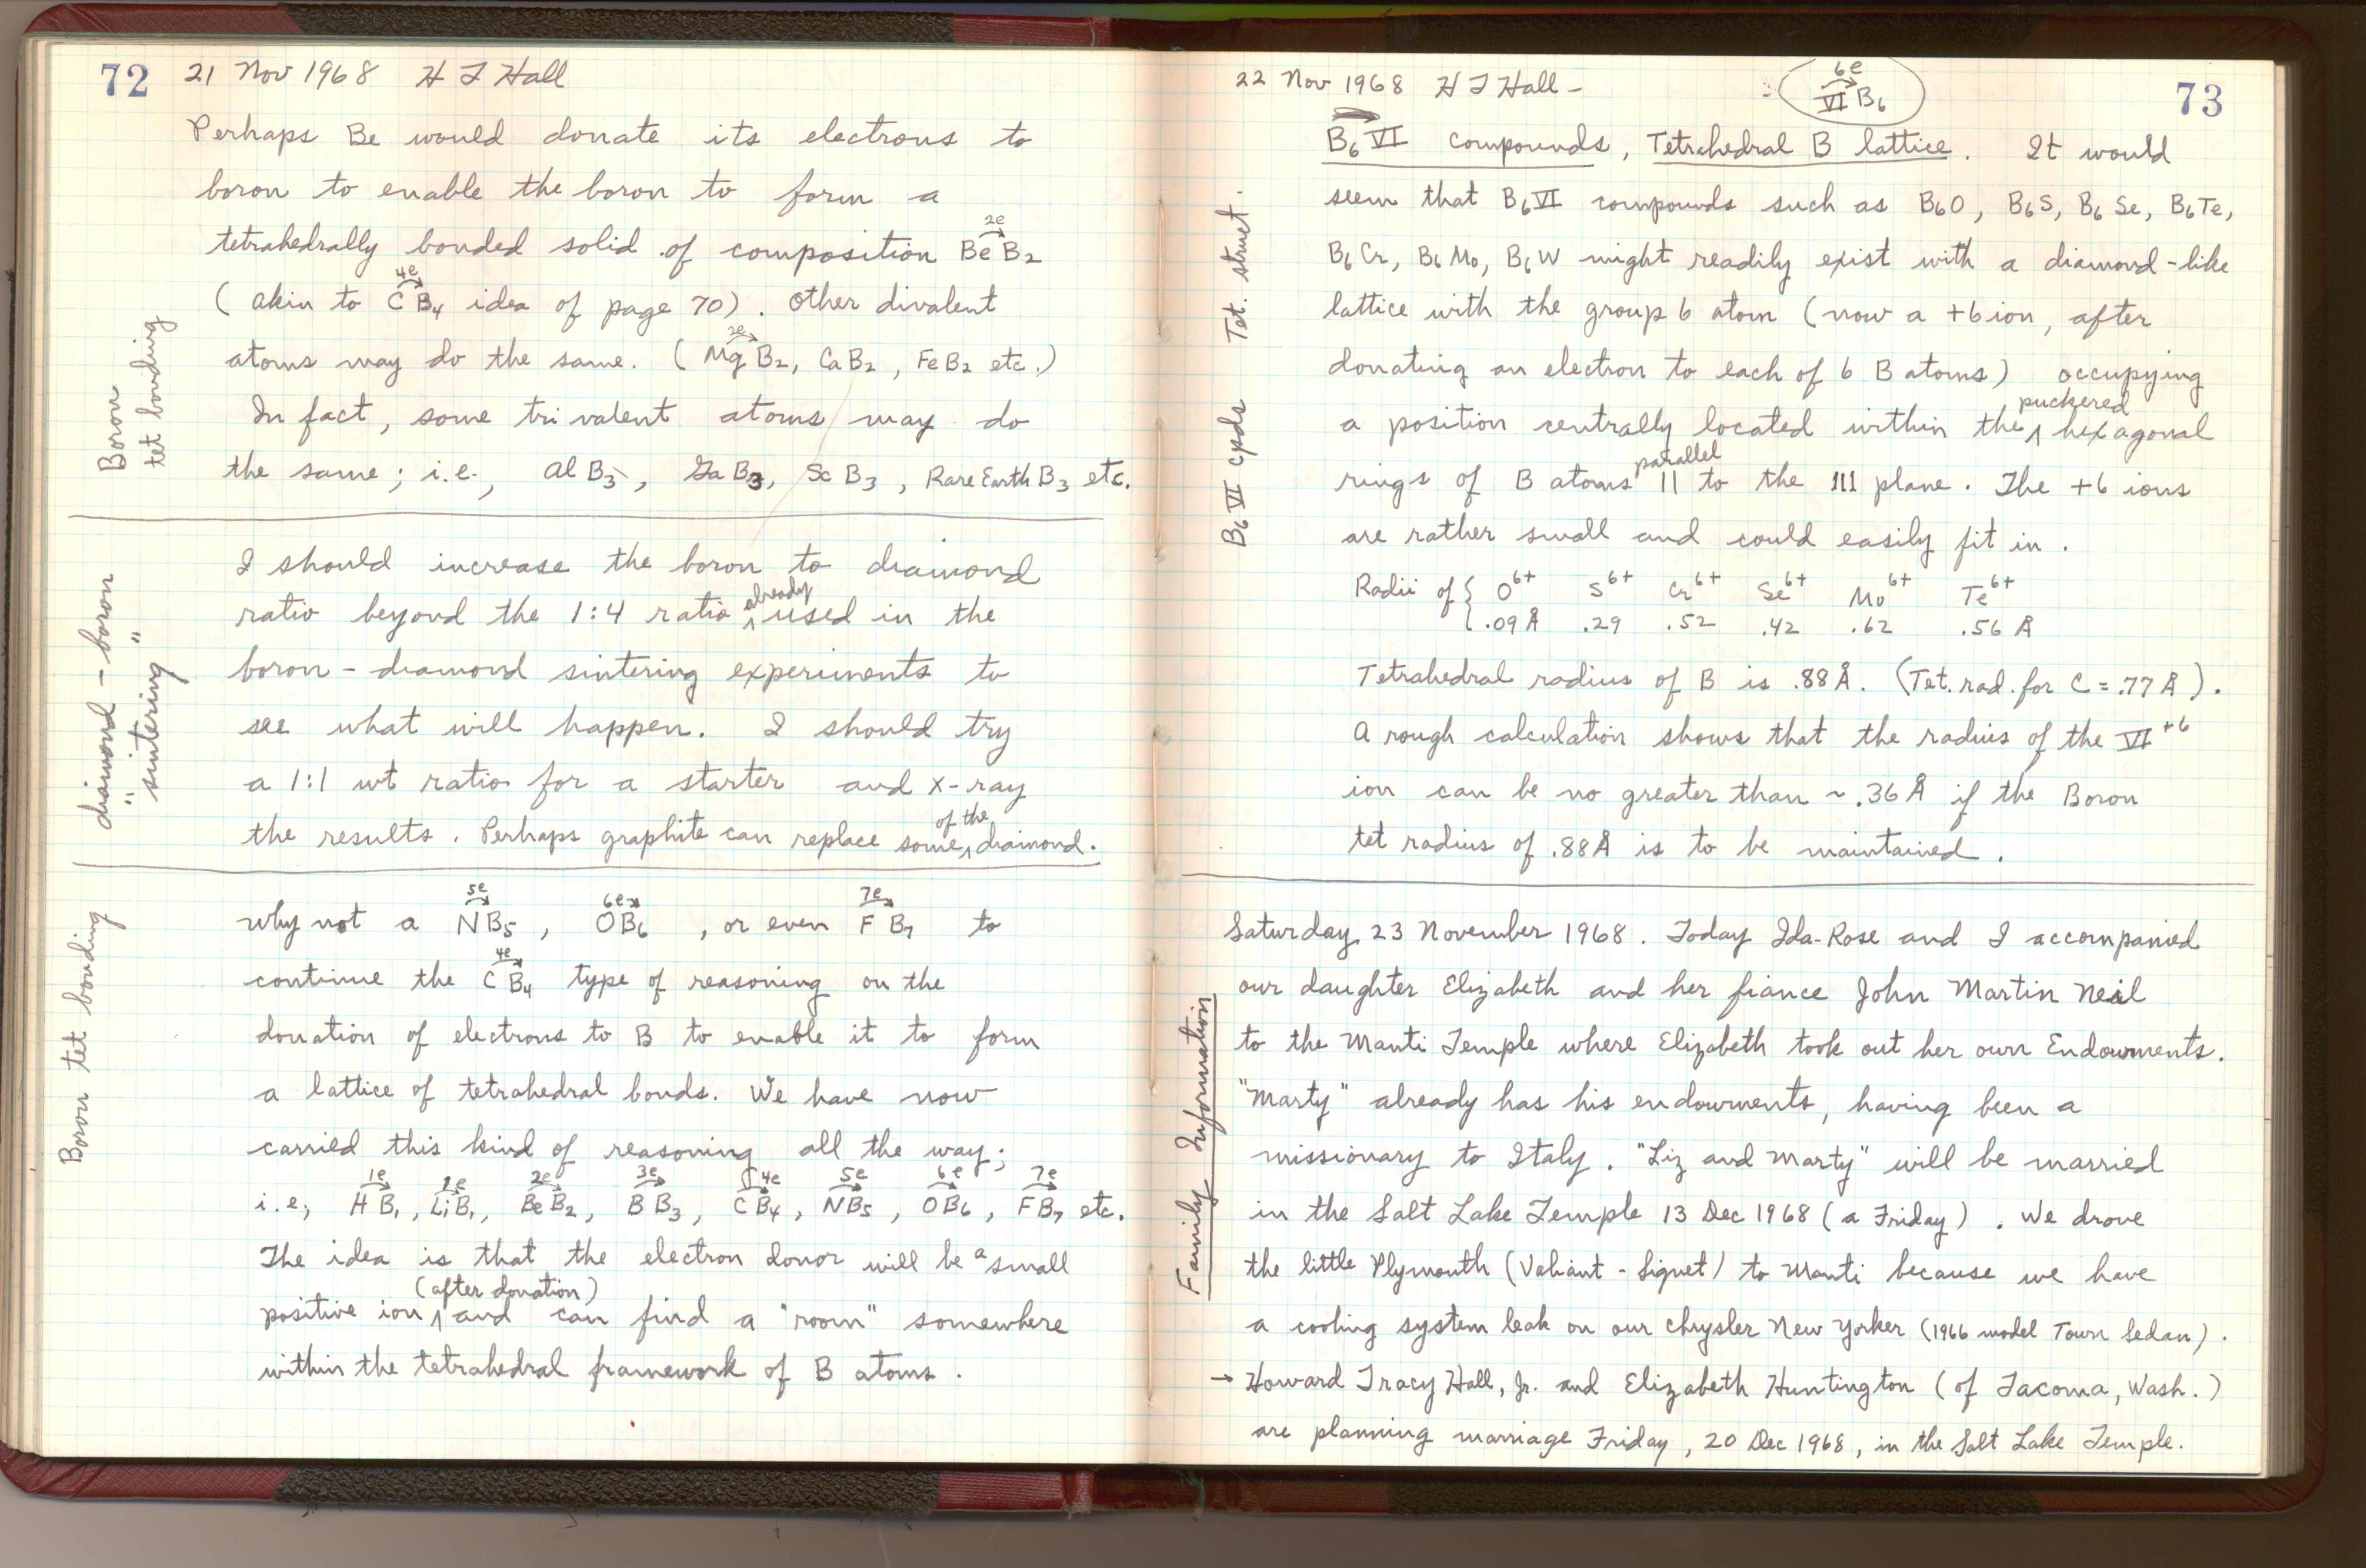 72 21 Nov 1968 H T Hall
Perhaps Be would donate its electrons to
boron to enable the boron to form a
2e
tetrahedrally bonded solid of composition BeB₂
4e
(akin to CB₄ idea of page 70). Other divalent
2e
atoms may do the same. (MgB₂, CaB₂, FeB₂ etc.)
In fact, some trivalent atoms may do
the same; i.e., AlB₃, GaB₃, ScB₃, Rare Earth B₃ etc.
Boron
tet bonding
I should increase the boron to diamond
already
ratio beyond the 1:4 ratio ^ used in the
boron - diamond sintering experiments to
see what will happen. I should try
a 1:1 wt ratio for a starter and x-ray
of the
the results. Perhaps graphite can replace some ^ diamond.
diamond - boron
"sintering"
5e 6e 7e
Why not a NB₅, OB₆, or even FB₇ to
4e
continue the CB₄ type of reasoning on the
donation of electrons to B to enable it to form
a lattice of tetrahedral bonds. We have now
carried this kind of reasoning all the way;
1e 1e 2e 3e 4e 5e 6e 7e
i.e., HB₁, LiB₁, BeB₂, BB₃, CB₄, NB₅, OB₆, FB₇ etc.
The idea is that the electron donor will be a small
(after donation)
positive ion ^ and can find a "room" somewhere
within the tetrahedral framework of B atoms.
Boron tet bonding
22 Nov 1968 H T Hall - 73
6e
VI B₆
B₆VI compounds, Tetrahedral B lattice. It would
seem that B₆VI compounds such as B₆O, B₆S, B₆Se, B₆Te,
B₆Cr, B₆Mo, B₆W might readily exist with a diamond-like
lattice with the group 6 atom (now a +6 ion, after
donating an electron to each of 6 B atoms) occupying
puckered
a position centrally located within the ^ hexagonal
parallel
rings of B atoms || to the 111 plane. The +6 ions
are rather small and could easily fit in.
B₆VI cpds Tet. struct.
Radii of { O⁶⁺ S⁶⁺ Cr⁶⁺ Se⁶⁺ Mo⁶⁺ Te⁶⁺
.09Å .29 .52 .42 .62 .56 Å
Tetrahedral radius of B is .88Å. (Tet. rad. for C = .77Å).
A rough calculation shows that the radius of the VI⁺⁶
ion can be no greater than ~ .36Å if the Boron
tet radius of .88Å is to be maintained.
Saturday 23 November 1968. Today Ida-Rose and I accompanied
our daughter Elizabeth and her fiance John Martin Neil
to the Manti Temple where Elizabeth took out her own Endowments.
"Marty" already has his endowments, having been a
missionary to Italy. "Liz and Marty" will be married
in the Salt Lake Temple 13 Dec 1968 (a Friday). We drove
the little Plymouth (Valiant - Signet) to Manti because we have
a cooling system leak on our Chrysler New Yorker (1966 model Town Sedan).
→ Howard Tracy Hall, Jr. and Elizabeth Huntington (of Tacoma, Wash.)
are planning marriage Friday, 20 Dec 1968, in the Salt Lake Temple.
Family Information